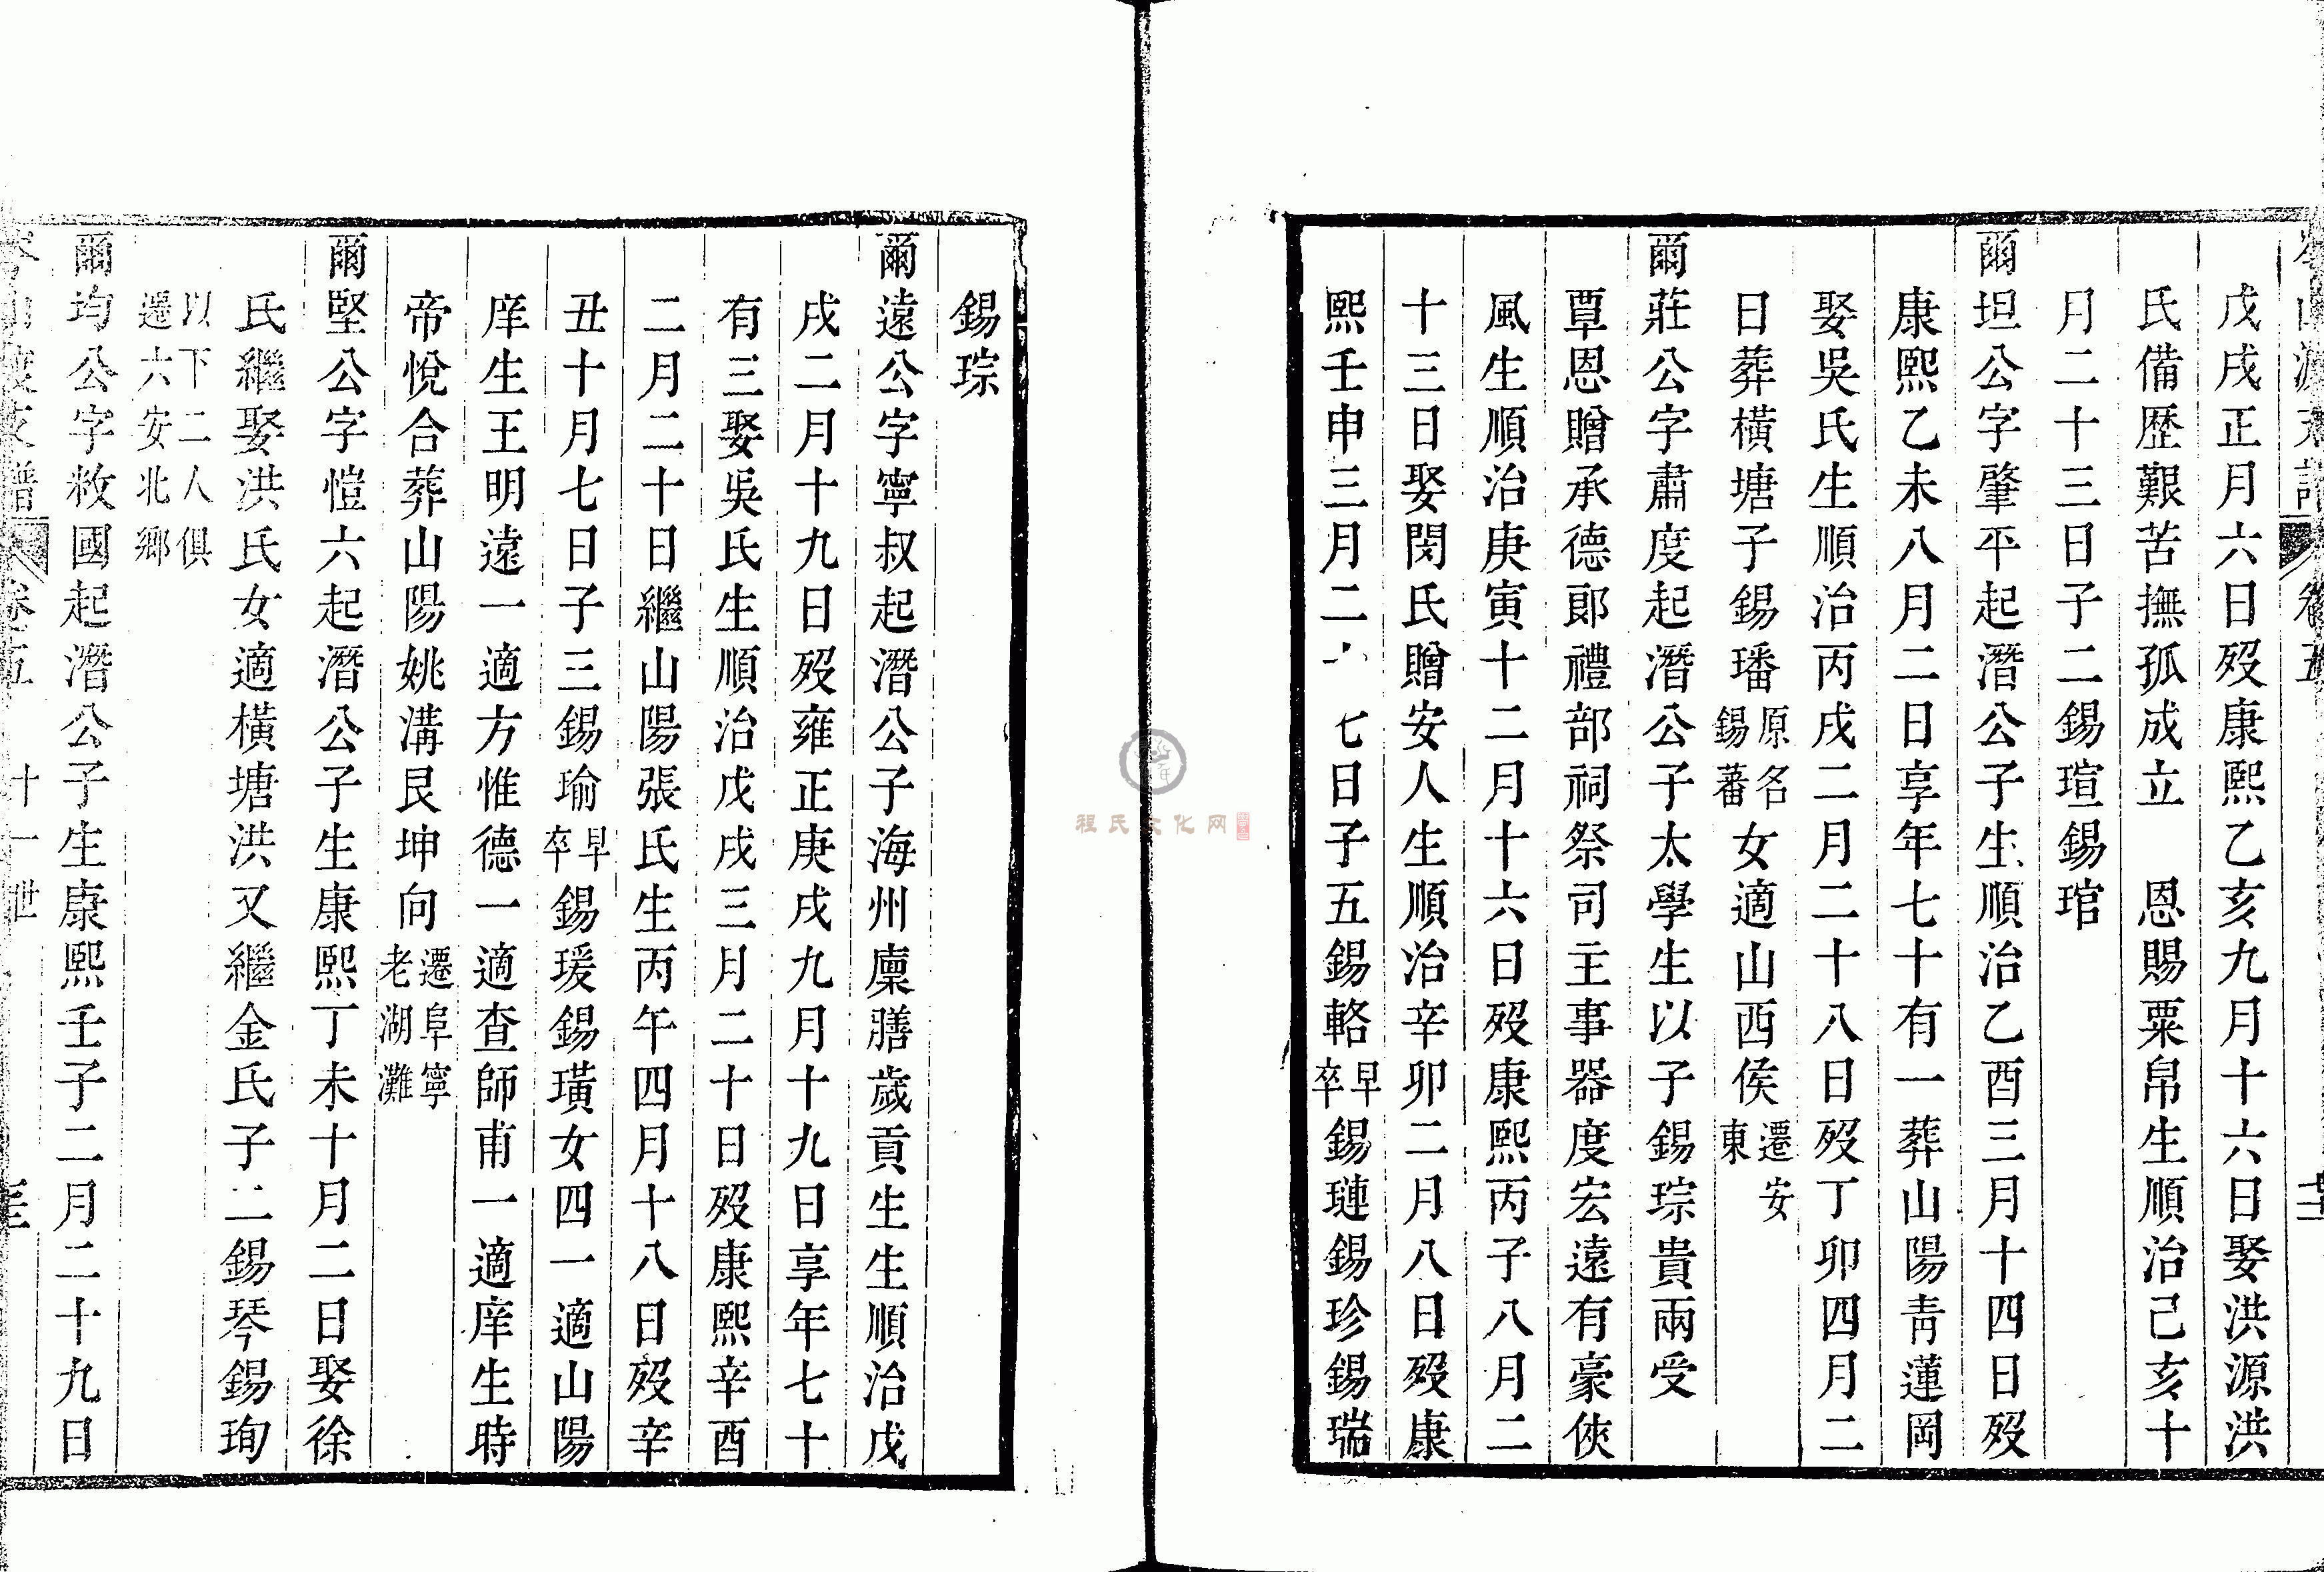 戊戌正月六日歿康熙乙亥九月十六日娶洪源洪
氏備歷艱苦撫孤成立 恩賜粟帛生順治己亥十
月二十三日子二錫瑄錫琯
爾坦公字肇平起潛公子生順治乙酉三月十四日歿
康熙乙未八月二日享年七十有一葬山陽靑蓮岡
娶吳氏生順治丙戌二月二十八日歿丁卯四月二
日葬橫塘子錫璠原名錫蕃女適山西侯遷安東
爾莊公字肅度起潛公子太學生以子錫琮貴兩受
覃恩贈承德郞禮部祠祭司主事器度宏遠有豪俠
風生順治庚寅十二月十六日歿康熙丙子八月二
十三日娶閔氏贈安人生順治辛卯二月八日歿康
熙壬申三月二 七日子五錫輅早卒錫璉錫珍錫瑞
錫琮
爾遠公字寧叔起潛公子海州廩膳歲貢生生順治戊
戌二月十九日歿雍正庚戌九月十九日享年七十
有三娶吳氏生順治戊戌三月二十日歿康熙辛酉
二月二十日繼山陽張氏生丙午四月十八日歿辛
丑十月七日子三錫瑜早卒錫瑗錫璜女四一適山陽
庠生王明遠一適方惟德一適查師甫一適庠生時
帝悅合葬山陽姚溝艮坤向遷阜寧老湖灘
爾堅公字愷六起潛公子生康熙丁未十月二日娶徐
氏繼娶洪氏女適橫塘洪又繼金氏子二錫琴錫珣
以下二人俱遷六安北鄉
爾均公字敉國起潛公子生康熙壬子二月二十九日
卷五 十一世
程氏文化网